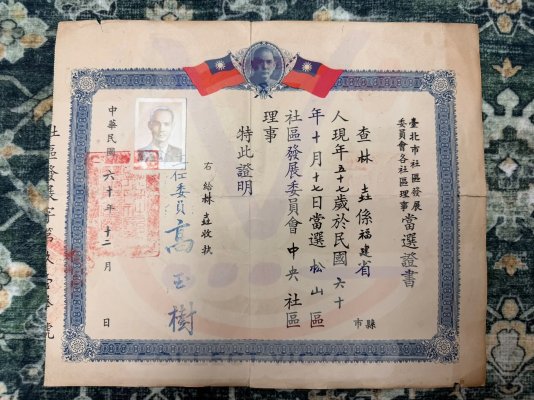 臺北市社區發展
委員會各社區理事
當選證書
查林 垚係福建省 縣市
人現年五十七歲於民國 六十
年十月十七日當選 松山 區
社區發展委員會 中央 社區
理事
特此證明
右給林垚收執
任委員 高玉樹
中華民國 六十年 十二月 日
社區發展字第
號